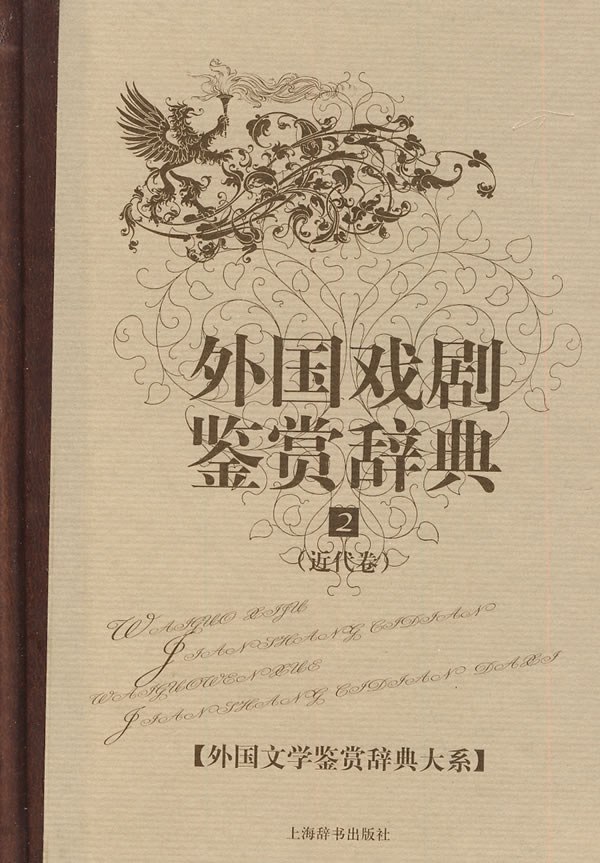 外国戏剧
鉴赏辞典
2
（近代卷）
WAIGUO XIJU
JIANSHANG CIDIAN
WAIGUOWENXUE
JIANSHANG CIDIAN DAXI
【外国文学鉴赏辞典大系】
上海辞书出版社